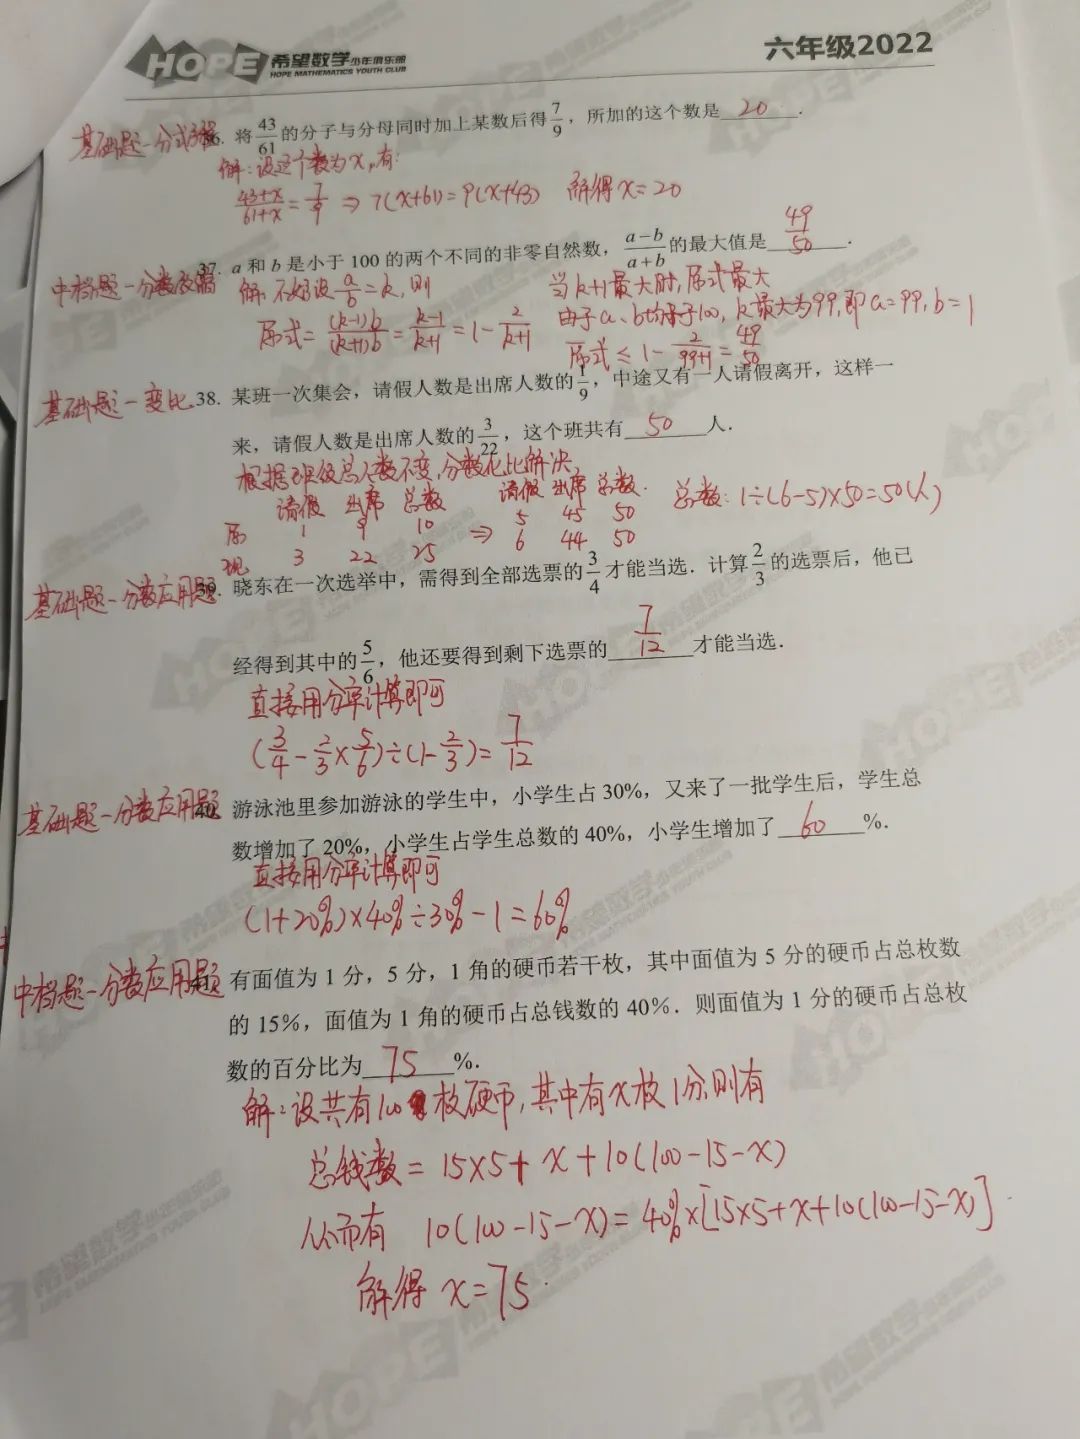 HOPE 希望数学少年俱乐部 六年级2022
HOPE MATHEMATICS YOUTH CLUB
基础题-分式方程 36. 将 43/61 的分子与分母同时加上某数后得 7/9 ，所加的这个数是 20 .
解：设这个数为x，有：
(43+x)/(61+x) = 7/9 ⇒ 7(x+61)=9(x+43) 解得 x=20
中档题-分数 37. a 和 b 是小于 100 的两个不同的非零自然数，(a−b)/(a+b) 的最大值是 49/50 .
解：不妨设 a/b = k，则 当k+1最大时，原式最大
原式= (k-1)b/(k+1)b = (k-1)/(k+1) = 1 - 2/(k+1) 由于a、b均小于100，k最大为99，即a=99，b=1
原式 ≤ 1 - 2/(99+1) = 49/50
基础题-变比 38. 某班一次集会，请假人数是出席人数的 1/9 ，中途又有一人请假离开，这样一
来，请假人数是出席人数的 3/22 ，这个班共有 50 人.
根据班级总人数不变，分数化比解决
请假 出席 总数 请假 出席 总数.
原 1 9 10 ⇒ 5 45 50 总数：1÷(6-5)×50=50(人)
现 3 22 25 6 44 50
基础题-分数应用题 39. 晓东在一次选举中，需得到全部选票的 3/4 才能当选．计算 2/3 的选票后，他已
经得到其中的 5/6 ，他还要得到剩下选票的 7/12 才能当选．
直接用分率计算即可
(3/4 - 2/3 × 5/6) ÷ (1- 2/3) = 7/12
基础题-分数应用题 40. 游泳池里参加游泳的学生中，小学生占 30%，又来了一批学生后，学生总
数增加了 20%，小学生占学生总数的 40%，小学生增加了 60 %.
直接用分率计算即可
(1+20%)×40%÷30% - 1 = 60%
中档题-分数应用题 41. 有面值为 1 分，5 分，1 角的硬币若干枚，其中面值为 5 分的硬币占总枚数
的 15%，面值为 1 角的硬币占总钱数的 40%．则面值为 1 分的硬币占总枚
数的百分比为 75 %.
解：设共有100枚硬币，其中有x枚1分，则有
总钱数 = 15×5+ x + 10(100-15-x)
从而有 10(100-15-x) = 40%×[15×5+x+10(100-15-x)] .
解得 x=75